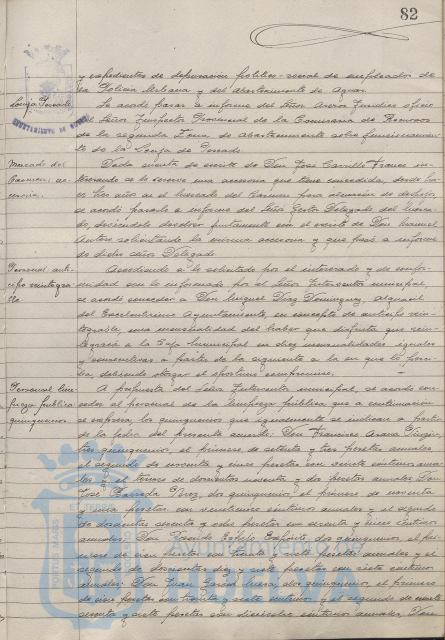 82
y expedientes de depuración político-social de empleados de
la Policía Urbana y del abastecimiento de Aguas.
Lonja Pescado
Se acordó pasar a informe del Señor Asesor Jurídico oficio
del Señor Inspector Provincial de la Comisaría de Recursos
de la segunda Zona de Abastecimiento sobre funcionamien-
to de la Lonja de Pescado.
Mercado del
Carmen, ac-
cesoria.
Dada cuenta de escrito de Don José Carrillo Franco in-
teresando se le reserve una accesoria que tiene concedida, desde ha-
ce tres años en el mercado del Carmen para de despojos,
se acordó pasarlo a informe del Señor Gestor Delegado del merca-
do, juntamente con el escrito de Don Manuel
solicitando la misma accesoria y que pasó a informe
de dicho señor Delegado.
Personal anti-
cipo reintegra-
ble
Accediendo a lo solicitado por el interesado y de confor-
midad con lo informado por el Señor Interventor municipal,
se acordó conceder a Don Miguel Díaz Domínguez, alguacil
del Excelentísimo Ayuntamiento, en concepto de anticipo rein-
tegrable, una mensualidad del haber que disfruta que rein-
tegrará a la Caja Municipal en diez mensualidades iguales
y consecutivas a partir de la siguiente a la en que la perci-
ba, debiendo otorgar el oportuno compromiso.
Personal lim-
pieza pública
quinquenios.
A propuesta del Señor Interventor municipal, se acordó con-
ceder al personal de la limpieza pública que a continuación
se expresa, los quinquenios que igualmente se indican a partir
de la fecha del presente acuerdo: Don Francisco Arana
tres quinquenios, el primero de setenta y tres pesetas anuales
el segundo de noventa y cinco pesetas con veinte céntimos anua-
les y el tercero de doscientas noventa y dos pesetas anuales Don
José Parrada Pérez, dos quinquenios, el primero de noventa
y una pesetas con veinticinco céntimos anuales y el segundo
de doscientas sesenta y ocho pesetas con sesenta y cinco céntimos
anuales; Don Espejo Expósito, dos quinquenios, el pri-
mero de cien pesetas con treinta y siete céntimos anuales y el
segundo de doscientas diez y siete pesetas con siete céntimos
anuales; Don Juan García dos quinquenios, el primero
de cien pesetas con treinta y siete céntimos y el segundo de
sesenta y siete pesetas con dieciséis céntimos anuales, Don